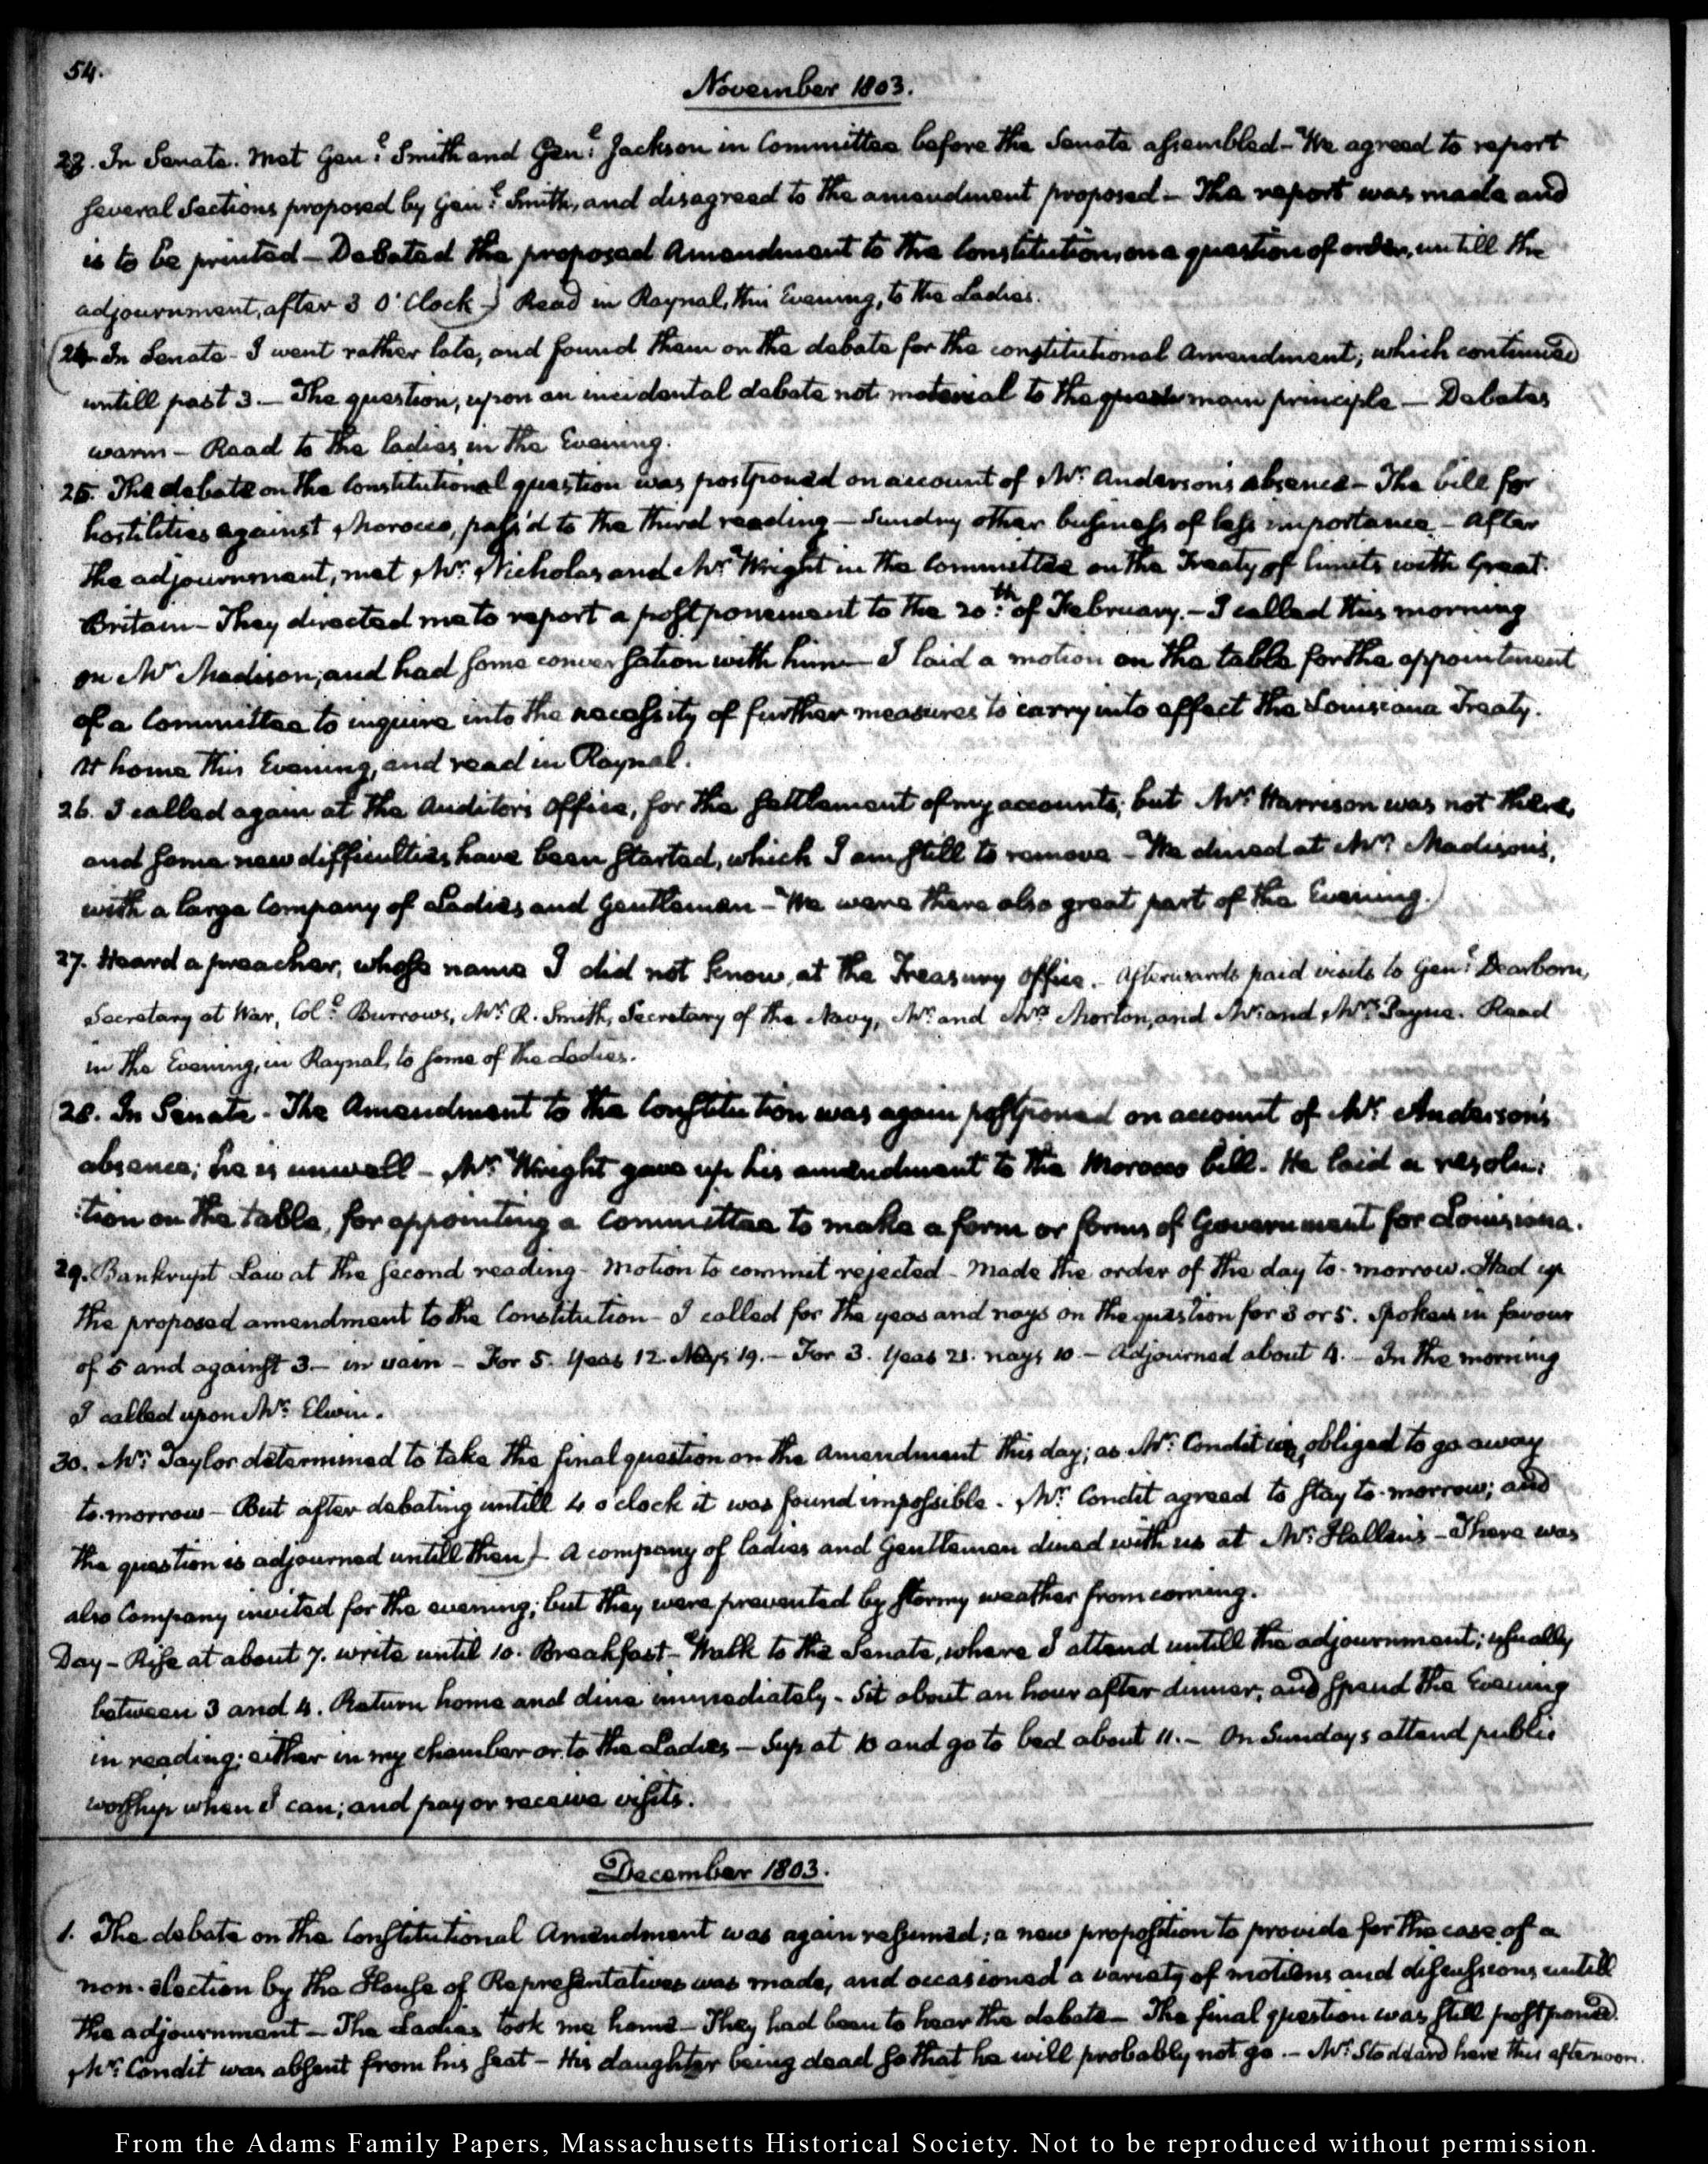 54.
November 1803.
23. In Senate. Met Genl. Smith and Genl. Jackson in Committee before the Senate assembled — We agreed to report
several Sections proposed by Genl. Smith, and disagreed to the amendment proposed — The report was made and
is to be printed — Debated the proposed Amendment to the Constitution, on a question of order, untill the
adjournment, after 3 O'Clock —) Read in Raynal, this Evening, to the Ladies.
(24. In Senate - I went rather late, and found them on the debate for the constitutional Amendment; which continued
untill past 3. — The question, upon an incidental debate not material to the main principle — Debates
warm — Read to the ladies in the Evening.
25. The debate on the Constitutional question was postponed on account of Mr. Anderson's absence — The bill for
hostilities against Morocco, pass'd to the third reading — Sundry other business of less importance — After
the adjournment, met Mr. Nicholas and Mr. Wright in the Committee on the Treaty of limits with Great
Britain — They directed me to report a postponement to the 20th. of February. — I called this morning
on Mr. Madison; and had some conversation with him — I laid a motion on the table for the appointment
of a Committee to inquire into the necessity of further measures to carry into effect the Louisiana Treaty.
At home this Evening, and read in Raynal.
26. I called again at the Auditor's Office, for the settlement of my accounts; but Mr. Harrison was not there,
and some new difficulties have been started, which I am still to remove — We dined at Mr. Madison's,
with a large Company of Ladies and Gentlemen — We were there also great part of the Evening.)
27. Heard a preacher, whose name I did not know, at the Treasury office. Afterwards paid visits to Genl. Dearborn,
Secretary at War, Coll. Burrows, Mr. R. Smith, Secretary of the Navy, Mr. and Mrs. Morton, and Mr. and Mrs. Payne. Read
in the Evening, in Raynal, to some of the Ladies.
28. In Senate - The Amendment to the Constitution was again postponed on account of Mr. Anderson's
absence; he is unwell — Mr. Wright gave up his amendment to the Morocco bill. He laid a resolu:
:tion on the table, for appointing a Committee to make a form or forms of Government for Louisiana.
29. Bankrupt Law at the second reading - Motion to commit rejected - Made the order of the day to-morrow. Had up
the proposed amendment to the Constitution - I called for the yeas and nays on the question for 3 or 5. Spoken in favour
of 5 and against 3 — in vain — For 5. Yeas 12. Nays 19. — For 3. Yeas 21. nays 10 — Adjourned about 4. — In the morning
I called upon Mr. Elwin.
30. Mr. Taylor determined to take the final question on the Amendment this day; as Mr. Condit is obliged to go away
to-morrow — But after debating untill 4 o'clock it was found impossible. Mr. Condit agreed to stay to-morrow; and
the question is adjourned untill then) — A company of ladies and Gentlemen dined with us at Mr. Hellen's — There was
also Company invited for the evening; but they were prevented by stormy weather from coming.
Day — Rise at about 7. write until 10. Breakfast — Walk to the Senate, where I attend untill the adjournment; usually
between 3 and 4. Return home and dine immediately - Sit about an hour after dinner, and spend the Evening
in reading; either in my chamber or to the Ladies — Sup at 10 and go to bed about 11. — On Sundays attend public
worship when I can; and pay or receive visits.
December 1803.
1. The debate on the Constitutional Amendment was again resumed; a new proposition to provide for the case of a
non-election by the House of Representatives was made, and occasioned a variety of motions and discussions untill
the adjournment — The Ladies took me home — They had been to hear the debate — The final question was still postponed.
Mr. Condit was absent from his seat — His daughter being dead so that he will probably not go. — Mr. Stoddard here this afternoon.
From the Adams Family Papers, Massachusetts Historical Society. Not to be reproduced without permission.